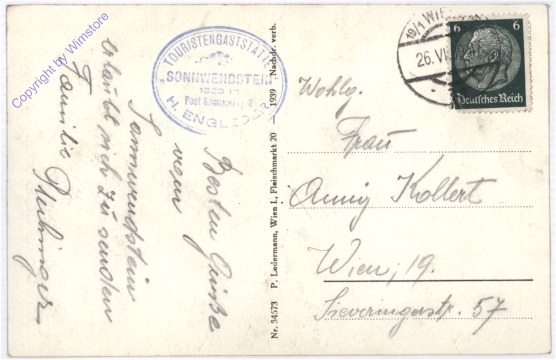 Copyright by Wimstore
TOURISTENGASTSTÄTTE
„SONNWENDSTEIN"
H. ENGLEDER
Besten Grüße
vom
Sonnwendstein
erlaubt sich zu senden
Familie
Nr. 34573 P. Ledermann, Wien I., Fleischmarkt 20 1939 Nachdr. verb.
6 6
Deutsches Reich
19/1 WIEN
26. VI.
Wohlg.
Frau
Anny Kollert
Wien, 19.
Sieveringerstr. 57